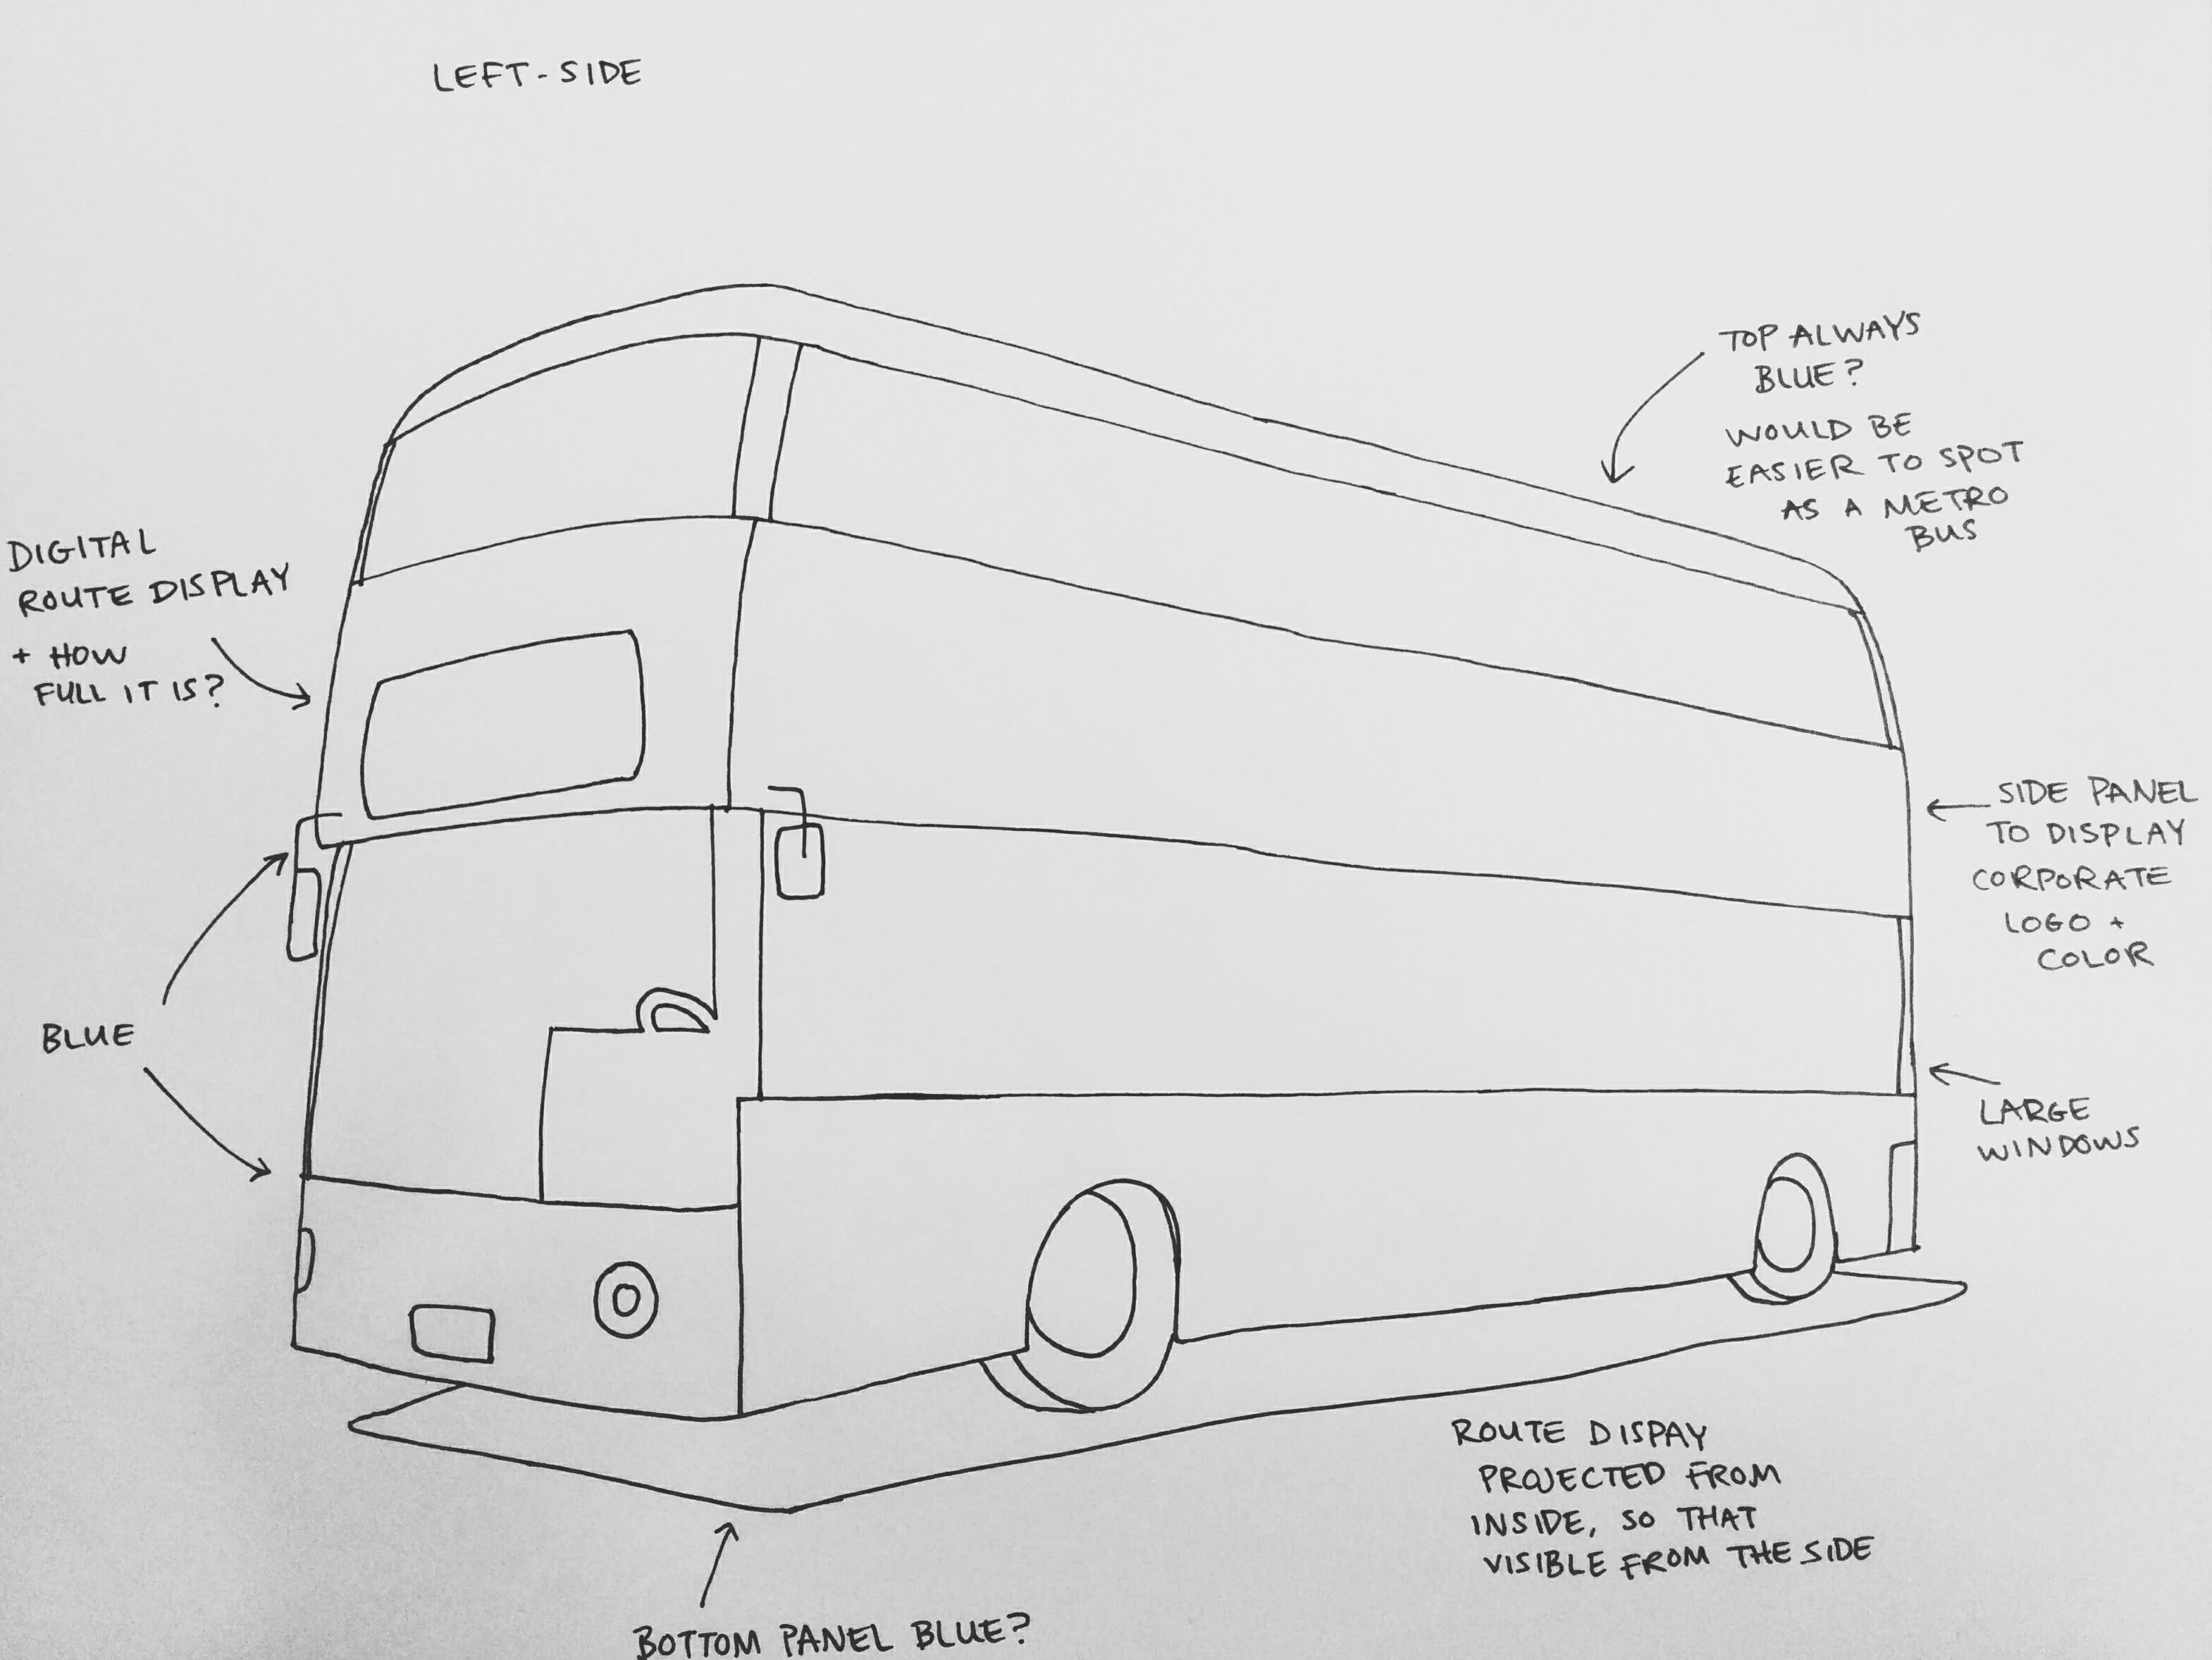 LEFT-SIDE
TOP ALWAYS
BLUE?
WOULD BE
EASIER TO SPOT
AS A METRO
BUS
DIGITAL
ROUTE DISPLAY
+ HOW
FULL IT IS?
SIDE PANEL
TO DISPLAY
CORPORATE
LOGO +
COLOR
BLUE
LARGE
WINDOWS
ROUTE DISPAY
PROJECTED FROM
INSIDE, SO THAT
VISIBLE FROM THE SIDE
BOTTOM PANEL BLUE?